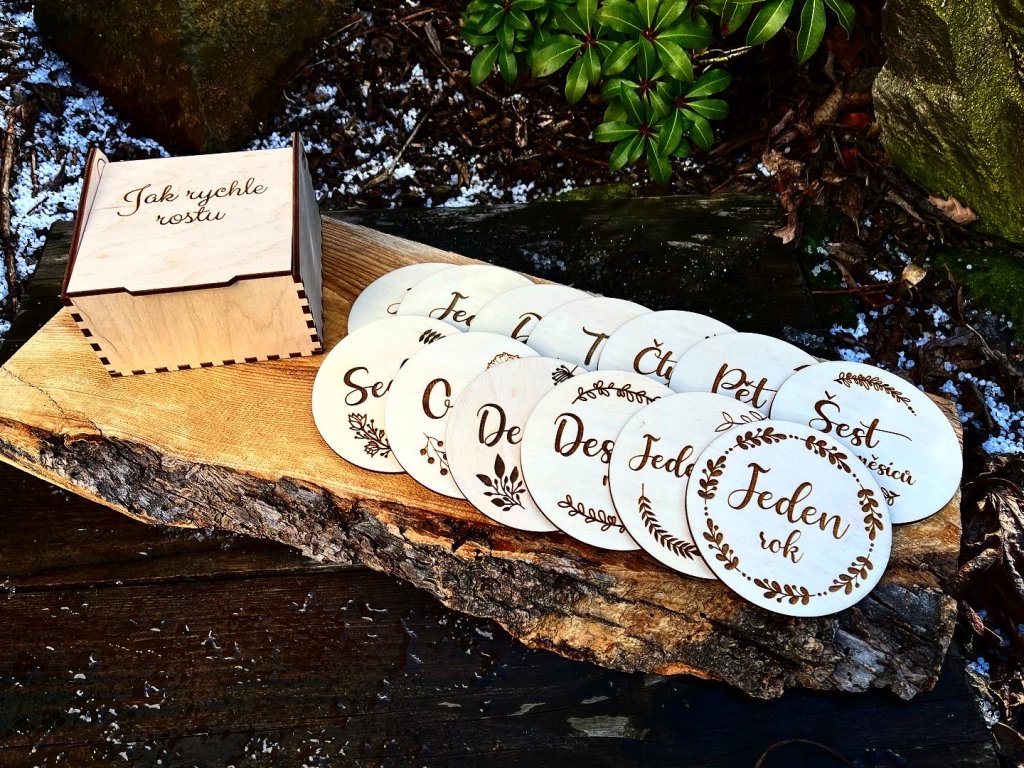 Jak rychle
rostu
Je
D
T
Čt
Pět
Šest
měsíců
Se
O
De
Des
Jede
Jeden
rok